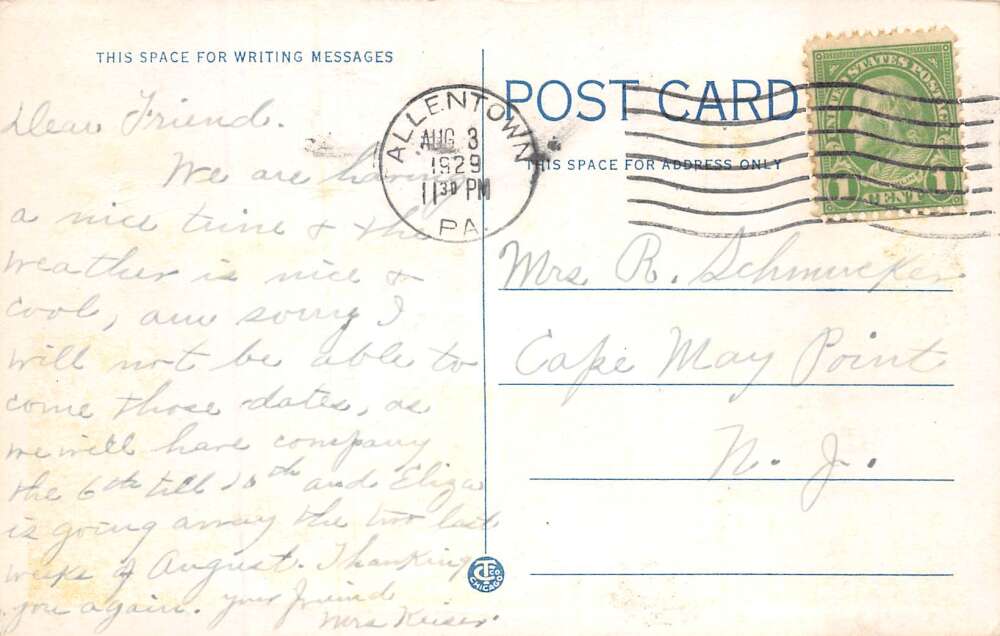 THIS SPACE FOR WRITING MESSAGES
Dear Friend.
We are having
a nice time & the
weather is nice &
cool, am sorry I
will not be able to
come those dates, as
we will have company
the 6th till 10th and Eliza
is going away the two last
weeks of August. Thanking
you again. your friend
Mrs Keiser.
ALLENTOWN
AUG 3
1929
11 30 PM
PA.
POST CARD
THIS SPACE FOR ADDRESS ONLY
UNITED STATES POSTAGE
1 CENT 1
Mrs. R. Schmucker
Cape May Point
N. J.
CHICAGO